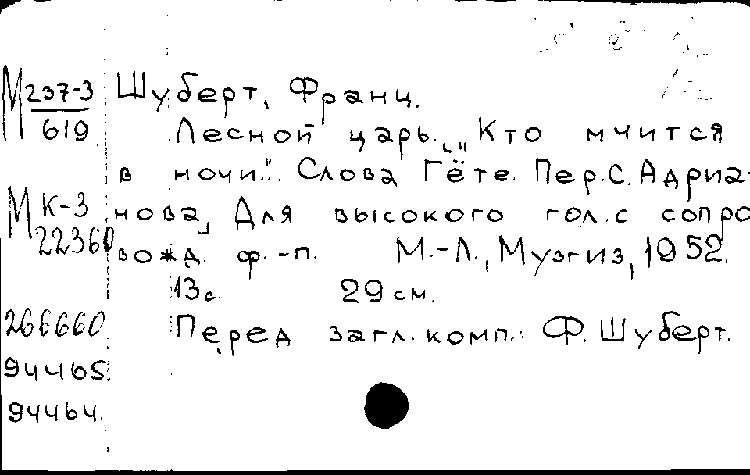 М 237-3
619
Шуберт, Франц.
Лесной царь. „Кто мчится
в ночи." Слова Гёте. Пер. С. Адриа-
М К-3
22360
нова] Для высокого гол. с сопро
вожд. ф.-п. М.-Л., Музгиз, 1952.
13 с. 29 см.
266660
Перед загл. комп.: Ф. Шуберт.
94465
94464.